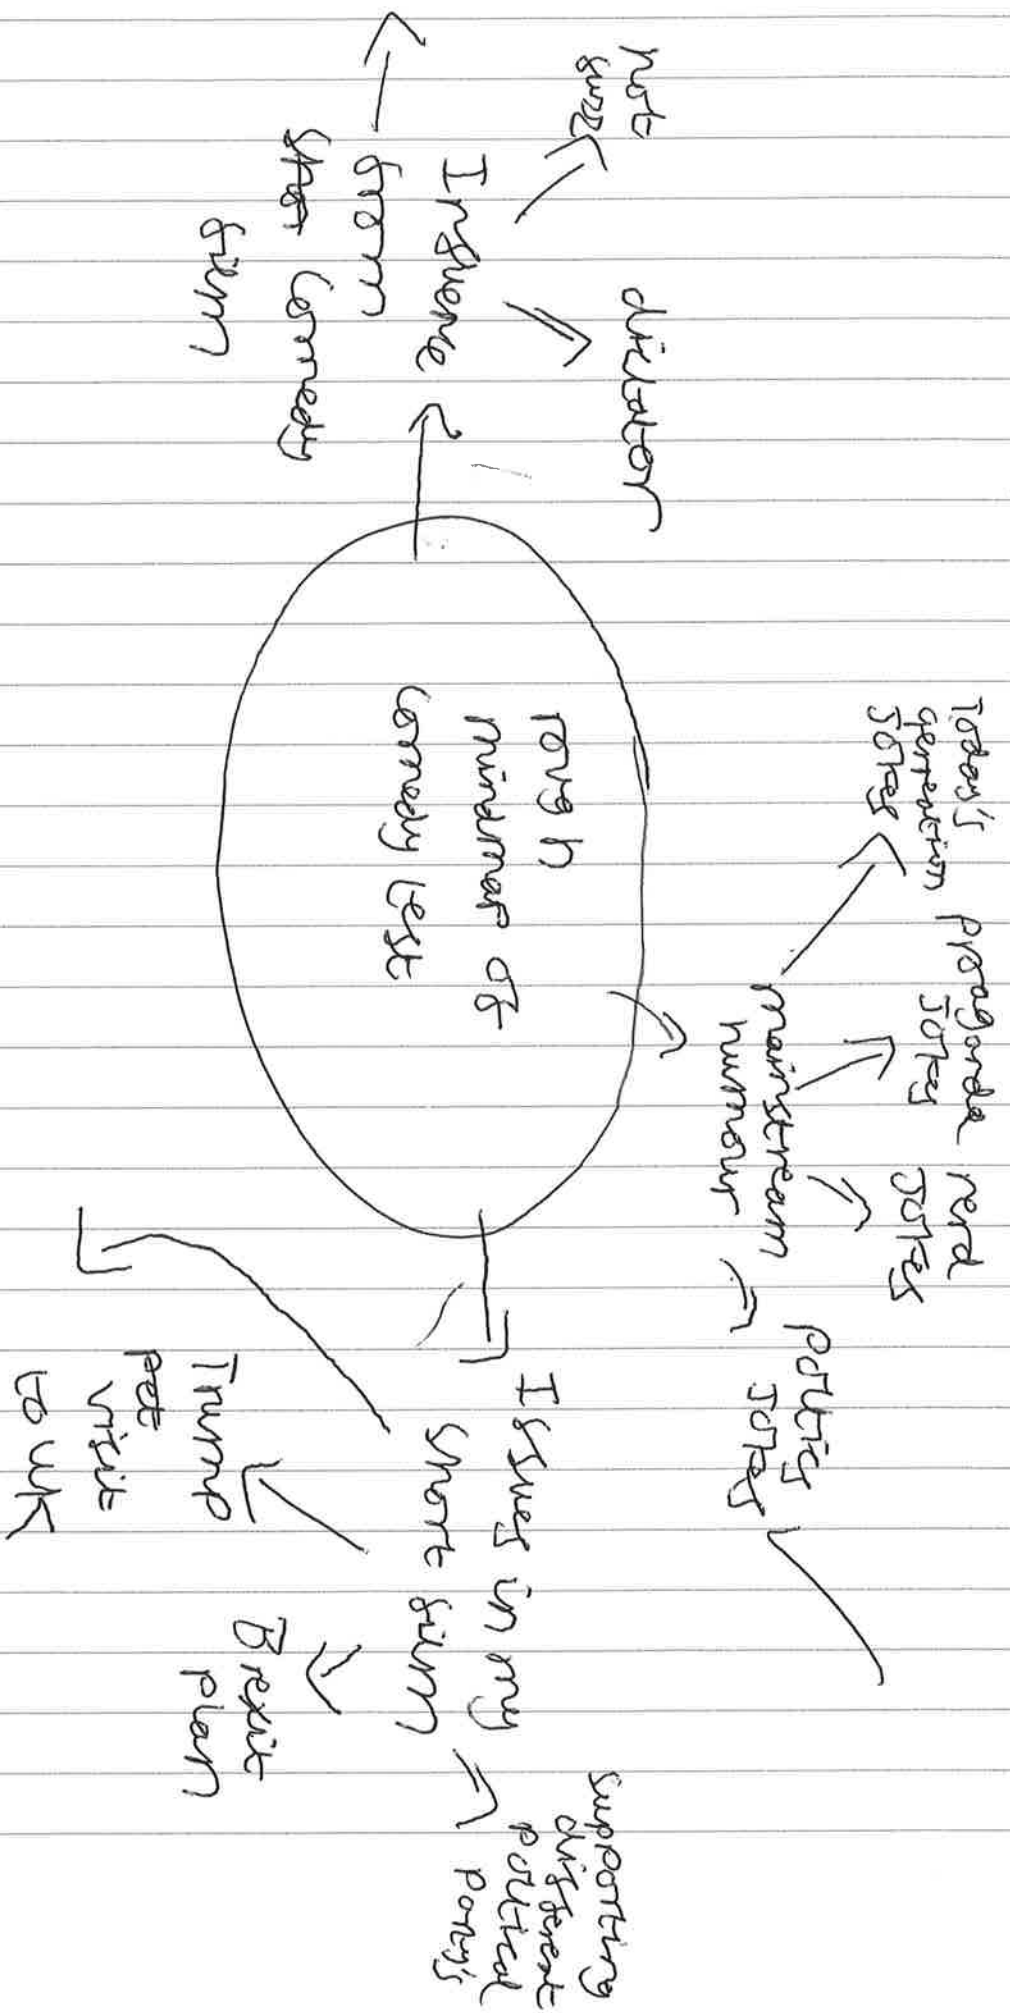 rough
mindmap of
comedy test
mainstream
humour
Today's
genreation
Jokes
propaganda
Jokes
nerd
Jokes
politics
Jokes
Issues in my
short film
supporting
different
political
party's
Brexit
plan
Trump
visit
to UK
Influence
from
comedy
film
not
sure
dictator